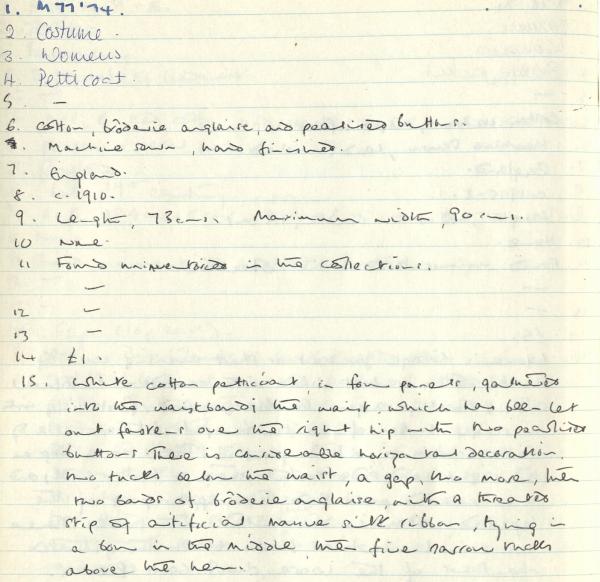 1. M77'74.
2 Costume.
3. Womens
4. Petticoat.
5 —
6. Cotton, brōderie anglaise, and pearlised buttons.
Machine sewn, hand finished.
7. England.
8. c. 1910.
9. Length, 73cms. Maximum width, 90cms.
10 None.
11 Found uninventoried in the collections.
—
12 —
13 —
14 £1.
15. White cotton petticoat in four panels, gathered
into the waistband; the waist which has been let
out fastens over the right hip with two pearlised
buttons There is considerable horizontal decoration,
two tucks below the waist, a gap, two more, then
two bands of brōderie anglaise, with a threaded
strip of artificial mauve silk ribbon, tying in
a bow in the middle then five narrow tucks
above the hem.